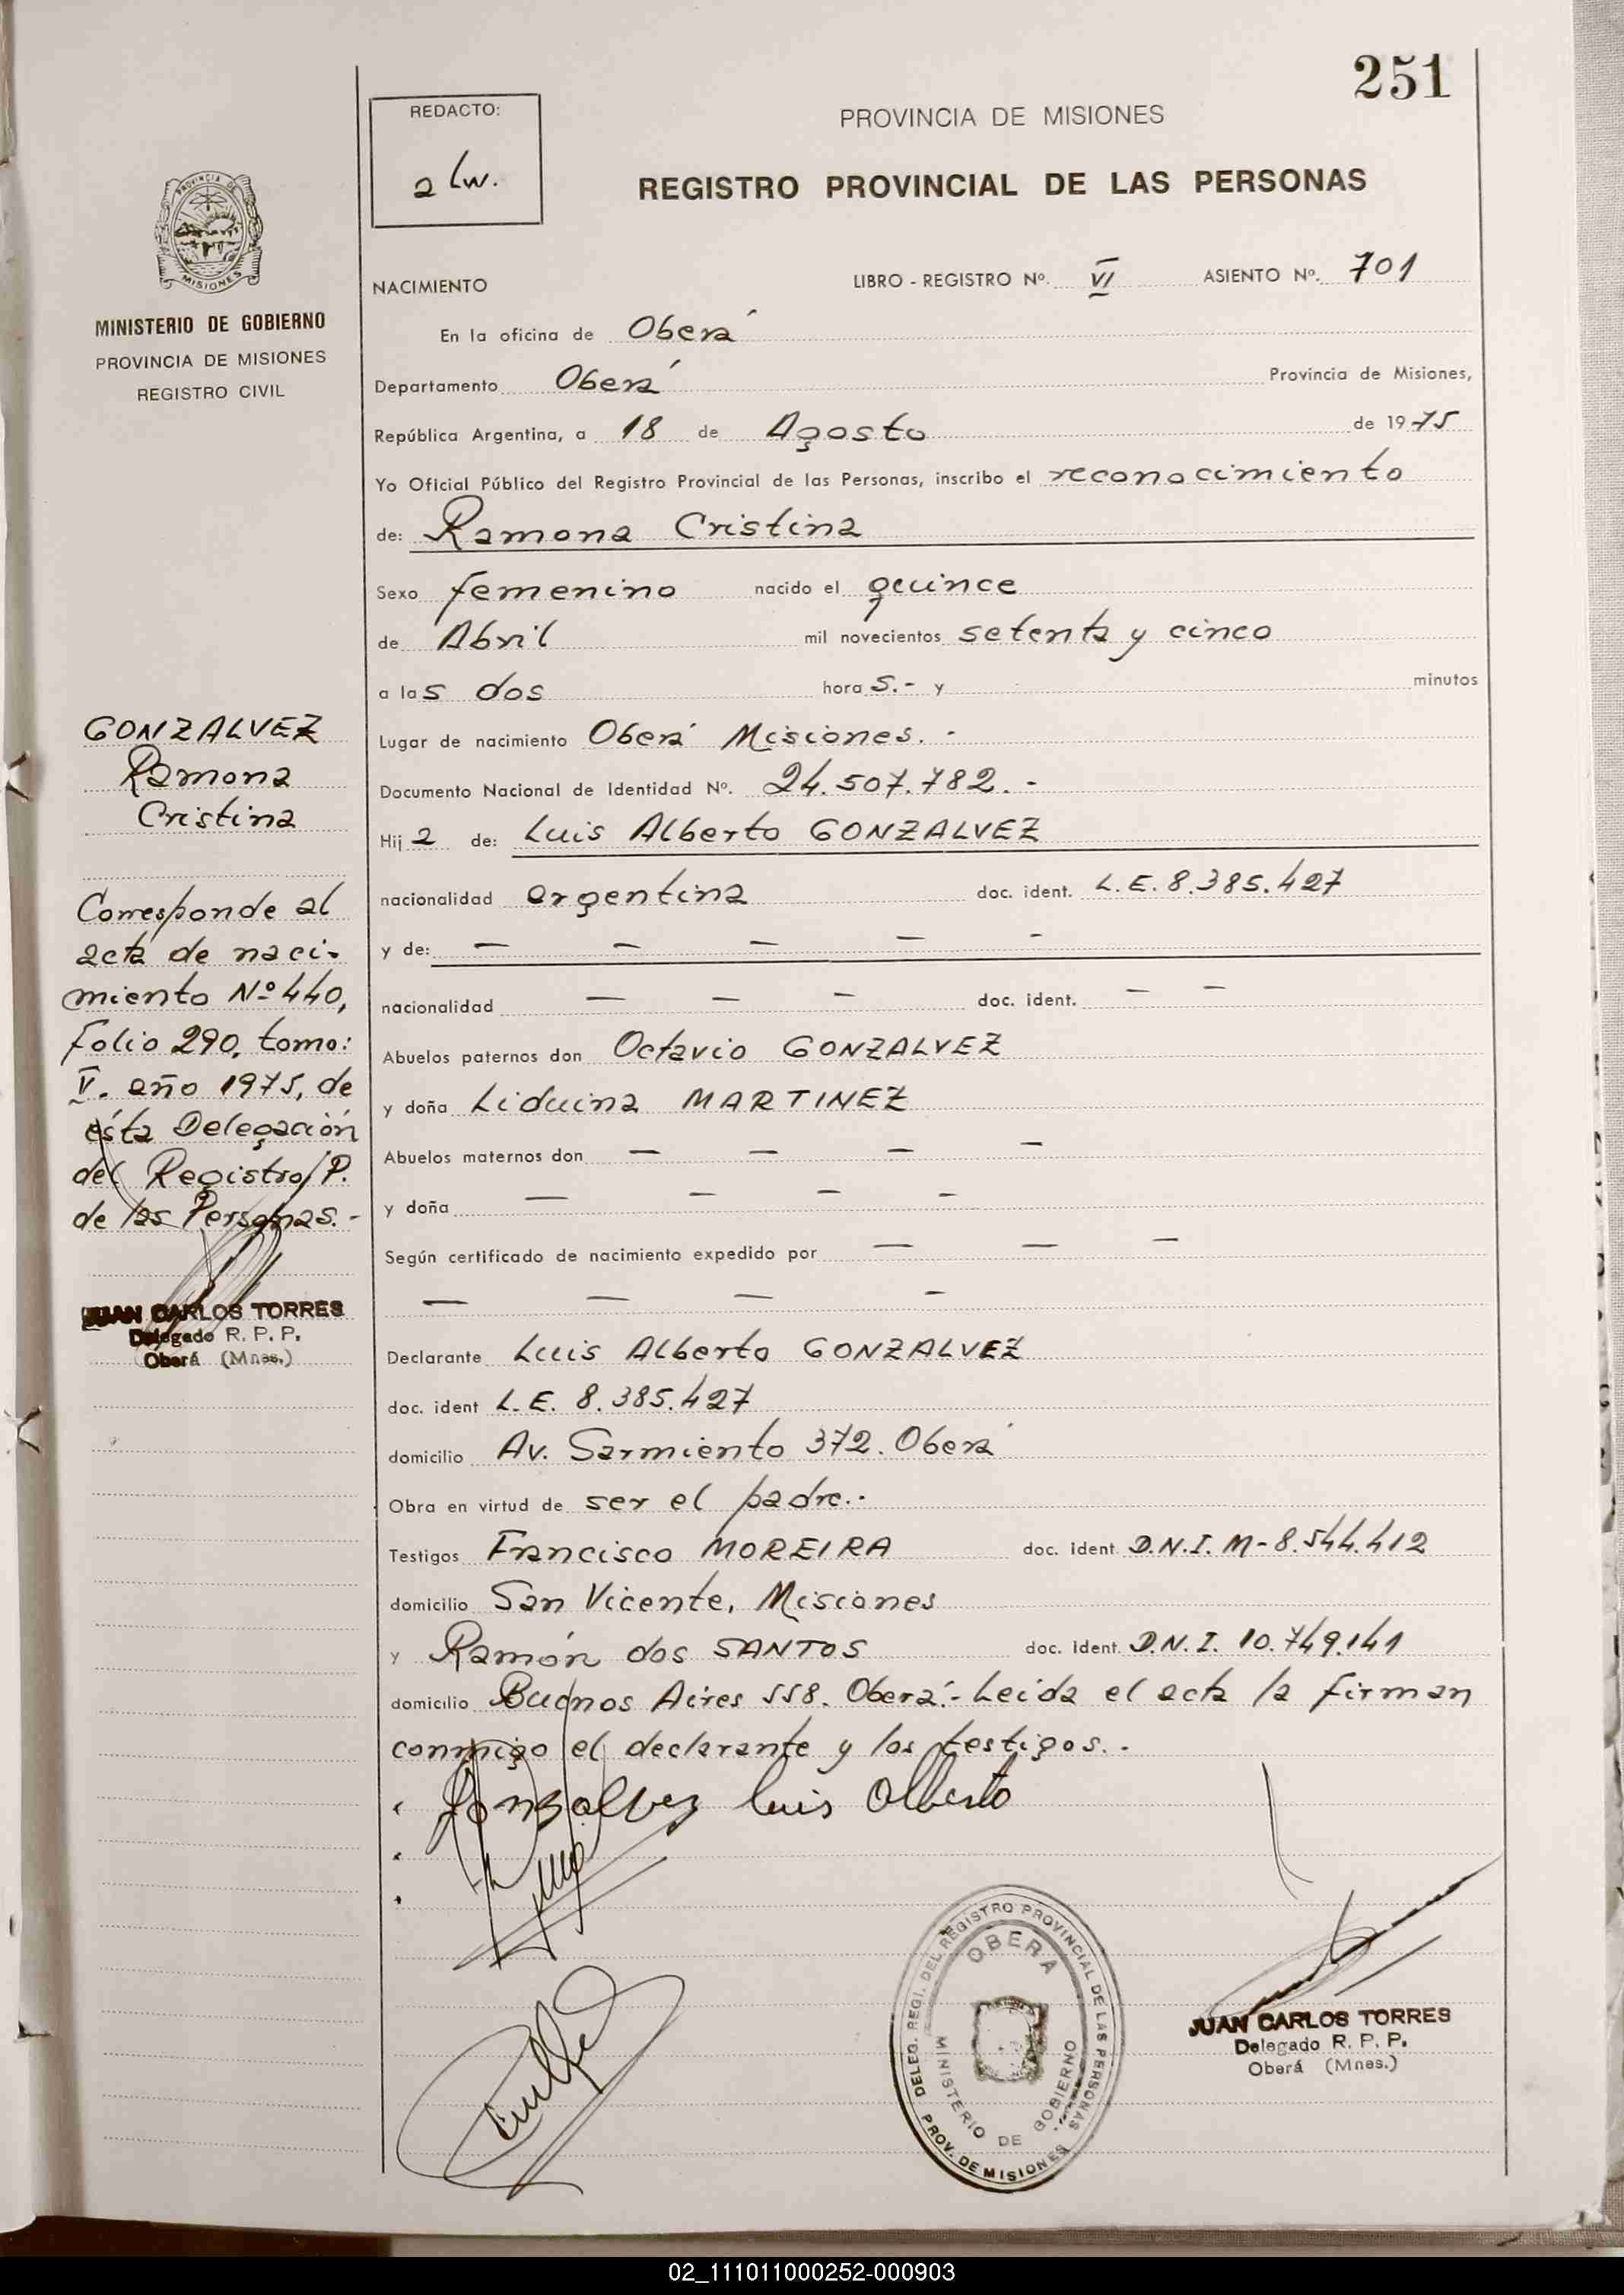 251
REDACTO:
a Lw.
PROVINCIA DE MISIONES
REGISTRO PROVINCIAL DE LAS PERSONAS
PROVINCIA DE
MISIONES
MINISTERIO DE GOBIERNO
PROVINCIA DE MISIONES
REGISTRO CIVIL
NACIMIENTO LIBRO - REGISTRO Nº. VI ASIENTO Nº. 701
En la oficina de Oberá
Departamento Oberá Provincia de Misiones,
República Argentina, a 18 de Agosto de 1975
Yo Oficial Público del Registro Provincial de las Personas, inscribo el reconocimiento
de: Ramona Cristina
Sexo femenino nacido el quince
de Abril mil novecientos setenta y cinco
a las dos hora s.- y minutos
Lugar de nacimiento Oberá Misiones. -
Documento Nacional de Identidad Nº. 24.507.782. -
Hij a de: Luis Alberto GONZALVEZ
nacionalidad argentina doc. ident. L.E. 8.385.427
y de: — — — — -
nacionalidad — — — doc. ident. — —
Abuelos paternos don Octavio GONZALVEZ
y doña Liduina MARTINEZ
Abuelos maternos don — — — —
y doña — — — —
Según certificado de nacimiento expedido por — — —
— — — —
Declarante Luis Alberto GONZALVEZ
doc. ident L.E. 8.385.427
domicilio Av. Sarmiento 372. Oberá
Obra en virtud de ser el padre.-
Testigos Francisco MOREIRA doc. ident. D.N.I. M-8.544.412
domicilio San Vicente, Misiones
y Ramón dos SANTOS doc. ident. D.N.I. 10.749.141
domicilio Buenos Aires 558. Oberá.- Leída el acta la firman
conmigo el declarante y los testigos. -
Gonzalvez luis Alberto
GONZALVEZ
Ramona
Cristina
Corresponde al
acta de naci-
miento Nº 440,
Folio 290, tomo:
V. año 1975, de
ésta Delegación
del Registro P.
de las Personas. -
JUAN CARLOS TORRES
Delegado R. P. P.
Oberá (Mnes.)
DELEG. REGI. DEL REGISTRO PROVINCIAL DE LAS PERSONAS
OBERA
MINISTERIO DE GOBIERNO
PROV. DE MISIONES
JUAN CARLOS TORRES
Delegado R. P. P.
Oberá (Mnes.)
02_111011000252-000903